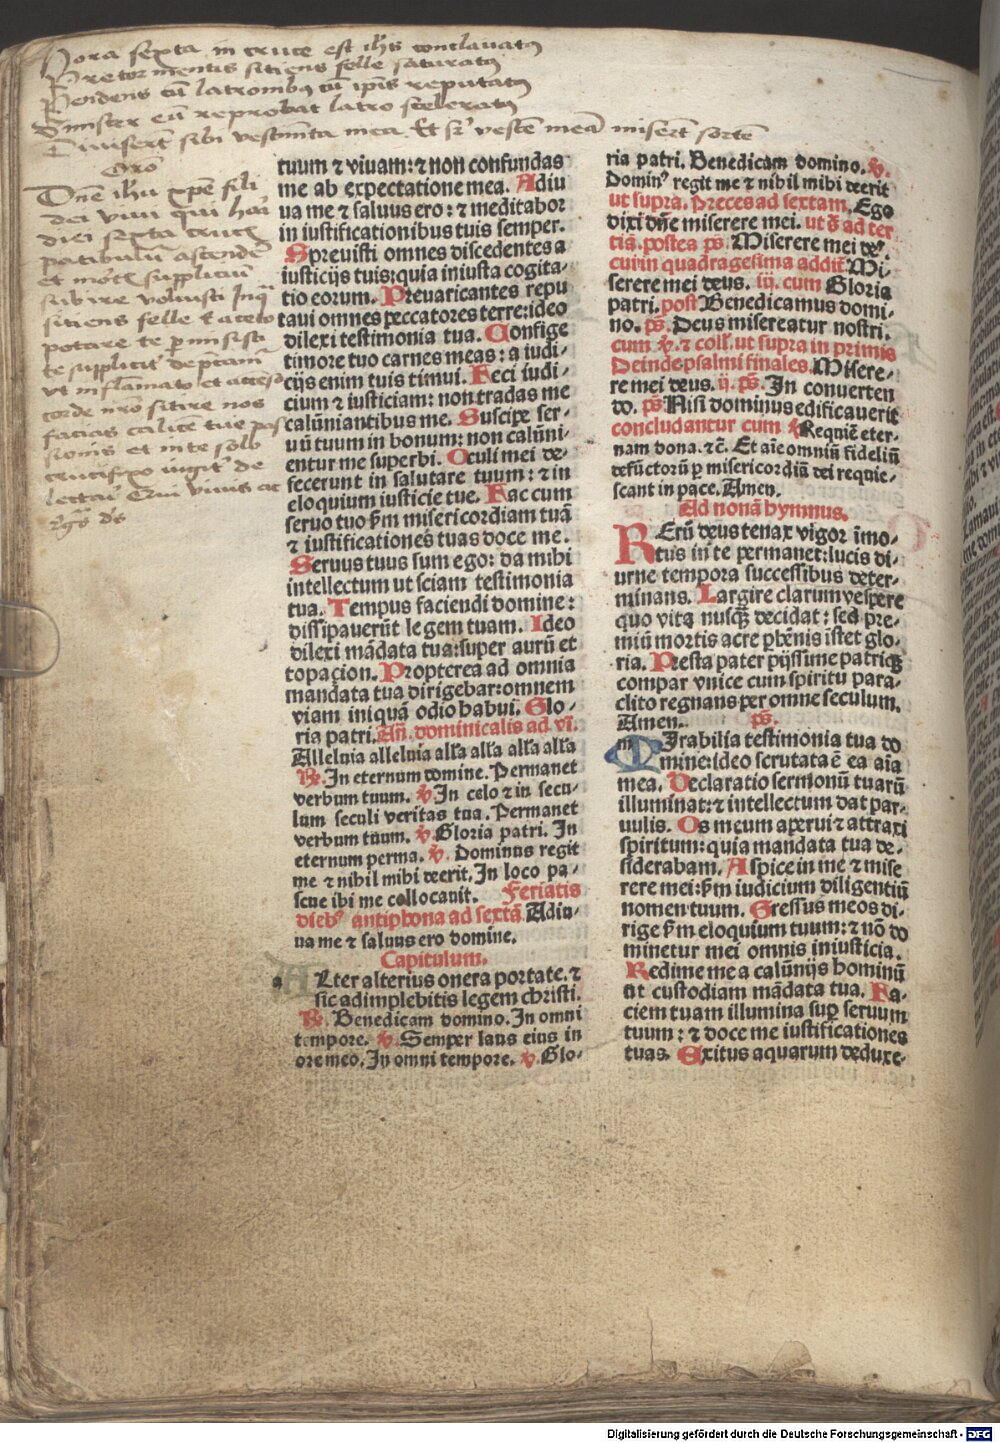 Hora sexta in cruce est ihs conclavatꝰ
Pre tormentis sitiens felle saturatꝰ
Pendens cū latronibꝰ cū ipīs reputatꝰ
Sinister eū reprobat latro sceleratꝰ
Diuisert sibi vestimta mea. Et sr vestē meā misert sortē
Oro
Dne ihu xpe fili
dei viui qui horā
diei sexta crucis
patibulū ascendē
et mortis suppliciū
subire voluisti
sitiens felle et aceto
potare te pmisisti
te supplicit depcam
vt inflamato et accēso
corde nro sitire nos
facias calice tue pas
sionis et in te solo
crucifixo iugit de
lectari Qui viuis ac
rgs ds
tuum ⁊ viuam:⁊ non confundas
me ab expectatione mea. Adiu
ua me ⁊ saluus ero: ⁊ meditabor
in iustificationibus tuis semper.
Spreuisti omnes discedentes a
iusticijs tuis:quia iniusta cogita-
tio eorum. Preuaricantes repu
taui omnes peccatores terre:ideo
dilexi testimonia tua. Confige
timore tuo carnes meas: a iudi-
cijs enim tuis timui. Feci iudi-
cium ⁊ iusticiam: non tradas me
calūniantibus me. Suscipe ser-
uū tuum in bonum: non calūni-
entur me superbi. Oculi mei de-
fecerunt in salutare tuum: ⁊ in
eloquium iusticie tue. Fac cum
seruo tuo ẜm misericordiam tuā
⁊ iustificationes tuas doce me.
Seruus tuus sum ego: da mihi
intellectum ut sciam testimonia
tua. Tempus faciendi domine:
dissipauerūt legem tuam. Ideo
dilexi mādata tua:super aurū et
topacion. Propterea ad omnia
mandata tua dirigebar:omnem
viam iniquā odio habui. Glo-
ria patri. Añ. dominicalis ad vi.
Alleluia alleluia alla alla alla alla
℟. In eternum domine. Permanet
verbum tuum. ℣. In celo ⁊ in secu-
lum seculi veritas tua. Permanet
verbum tuum. ℣. Gloria patri. In
eternum perma. ℣. Dominus regit
me ⁊ nihil mihi deerit. In loco pa-
scue ibi me collocauit. Feriatis
diebꝰ antiphona ad sextā Adiu-
ua me ⁊ saluus ero domine.
Capitulum.
a ALter alterius onera portate. ⁊
sic adimplebitis legem christi.
℟. Benedicam domino. In omni
tempore. ℣. Semper laus eius in
ore meo. In omni tempore. ℣. Glo-
ria patri. Benedicam domino. ℣.
Dominꝰ regit me ⁊ nihil mihi deerit
ut supra. Preces ad sextam. Ego
dixi dñe miserere mei. ut s̄ ad ter
tiā. postea ps̄. Miserere mei deꝰ.
cui in quadragesima addit Mi-
serere mei deus. iij. cum Gloria
patri. post Benedicamus domi-
no. ps̄. Deus misereatur nostri.
cum ℣. ⁊ coll. ut supra in primis
Deinde psalmi finales. Misere-
re mei deus. ij. ps̄. In conuerten
do. ps̄ Nisi dominus edificauerit
concludantur cum ℣ Requiē eter-
nam dona. ⁊c̄. Et aīe omniū fideliū
defūctorū p misericordiā dei requie-
scant in pace. Amen.
Ad nonā hymnus.
REru deus tenax vigor īmo-
tus in te permanet:lucis di-
urne tempora successibus deter-
minans. Largire clarum vespere
quo vita nusq̄ decidat: sed pre-
miū mortis acre phēnis īstet glo-
ria. Presta pater pijssime patriqꝫ
compar vnice cum spiritu para-
clito regnans per omne seculum.
Amen. ps̄.
m MIrabilia testimonia tua do
mine:ideo scrutata ē ea aīa
mea. Declaratio sermonū tuarū
illuminat:⁊ intellectum dat par-
uulis. Os meum aperui ⁊ attraxi
spiritum: quia mandata tua de-
siderabam. Aspice in me ⁊ mise
rere mei:ẜm iudicium diligentiū
nomen tuum. Gressus meos di-
rige ẜm eloquium tuum: ⁊ nō do
minetur mei omnis iniusticia.
Redime me a calūnijs hominū
ut custodiam mādata tua. Fa-
ciem tuam illumina sup seruum
tuum: ⁊ doce me iustificationes
tuas. Exitus aquarum deduxe-
Digitalisierung gefördert durch die Deutsche Forschungsgemeinschaft - DFG